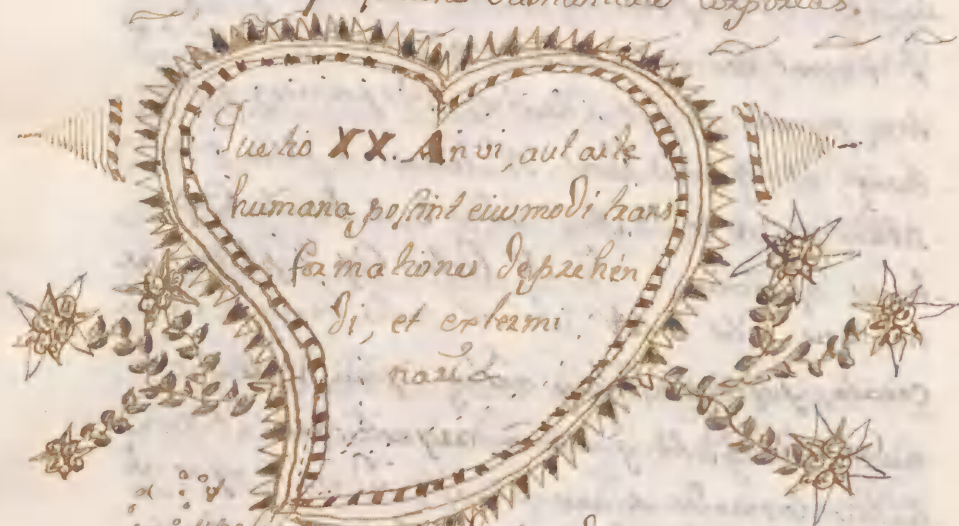 humanitate corporeas.
Quæstio XX. An vi, aut arte
humana possint eiusmodi trans
formationes deprehen
di, et extermi
nari?